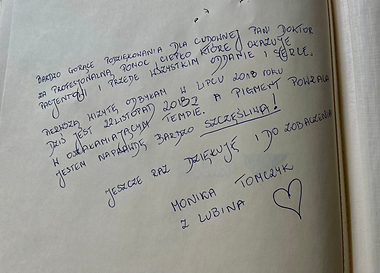 BARDZO GORĄCE PODZIĘKOWANIA DLA CUDOWNEJ PANI DOKTOR
ZA PROFESJONALNĄ POMOC CIEPŁO KTÓRE OKAZUJE
PACJENTOM I PRZEDE WSZYSTKIM ODDANIE I SERCE.
PIERWSZĄ WIZYTĘ ODBYŁAM W LIPCU 2018 ROKU
DZIŚ JEST 22 LISTOPAD 2018 A PIGMENT POWRACA
W OSZAŁAMIAJĄCYM TEMPIE.
JESTEM NAPRAWDĘ BARDZO SZCZĘŚLIWA!
JESZCZE RAZ DZIĘKUJĘ I DO ZOBACZENIA
MONIKA TOMCZYK
Z LUBINA